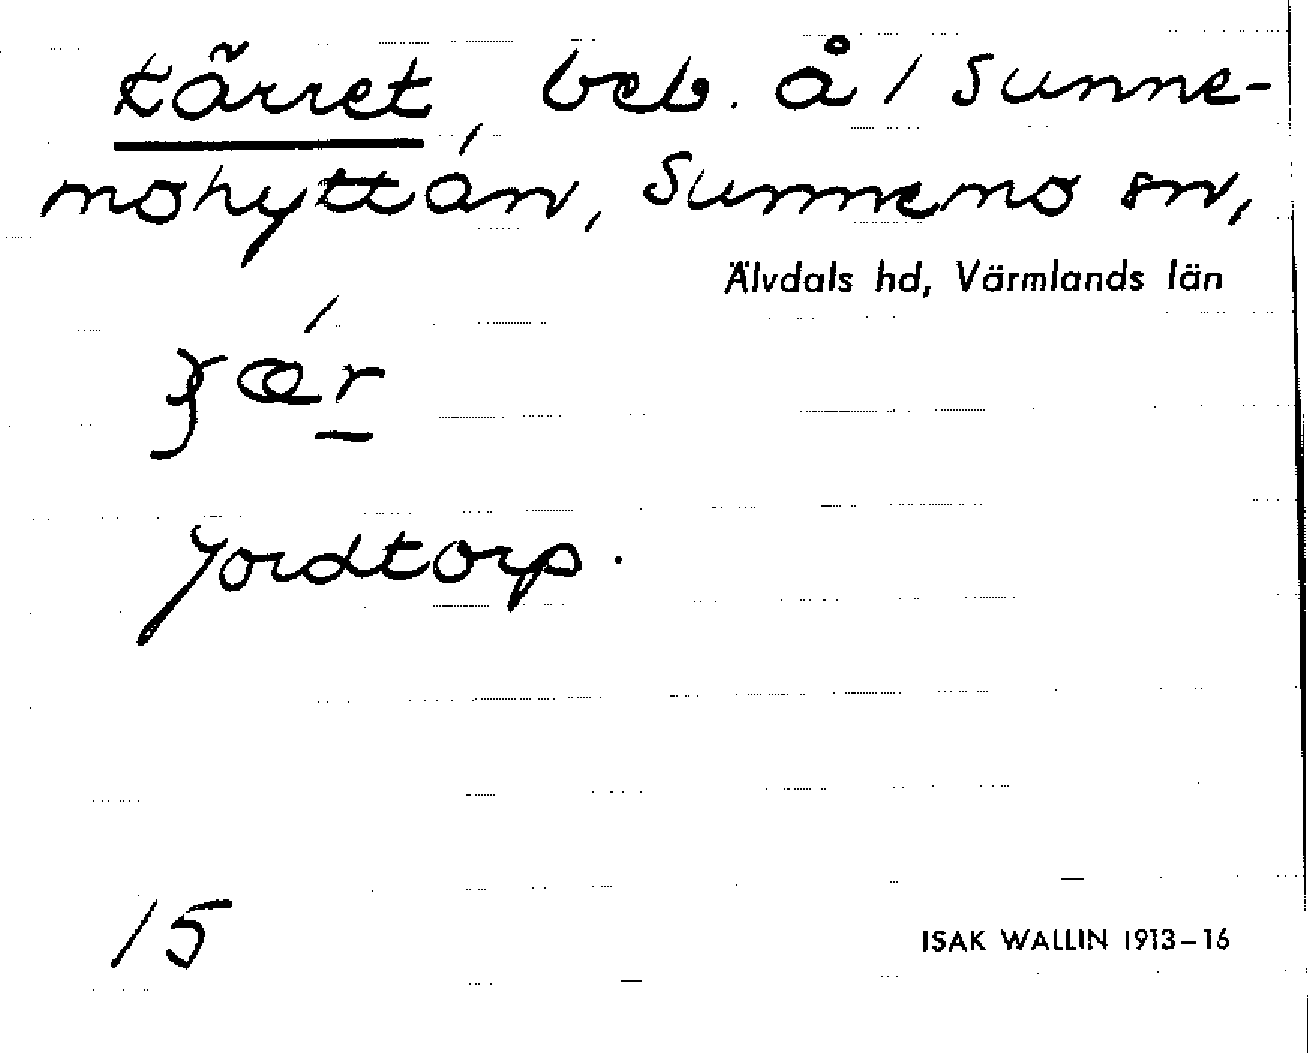 Kärret, beb. å 1 Sunne-
mohyttan, Sunnemo sn,
Älvdals hd, Värmlands län
Jordtorp.
15
ISAK WALLIN 1913–16